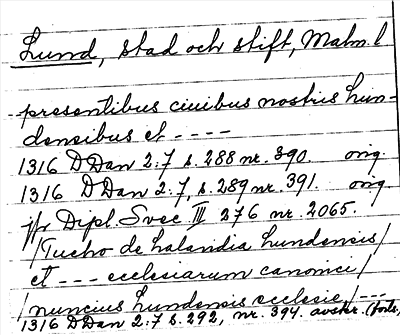 Lund, stad och stift, Malm. l
presentibus ciuibus nostris Lun-
densibus et ----
1316 DDan 2:7 s. 288 nr. 390. orig.
1316 DDan 2:7, s. 289 nr. 391. orig.
jfr Dipl. Svec III 276 nr. 2065.
/Tucho de halandia Lundensis/
et --- ecclesiarum canonici/
/nuncius Lundensis ecclesie/ ---
1316 DDan 2:7 s. 292, nr. 394. avskr. (forts,